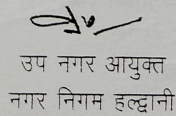 उप नगर आयुक्त
नगर निगम हल्द्वानी